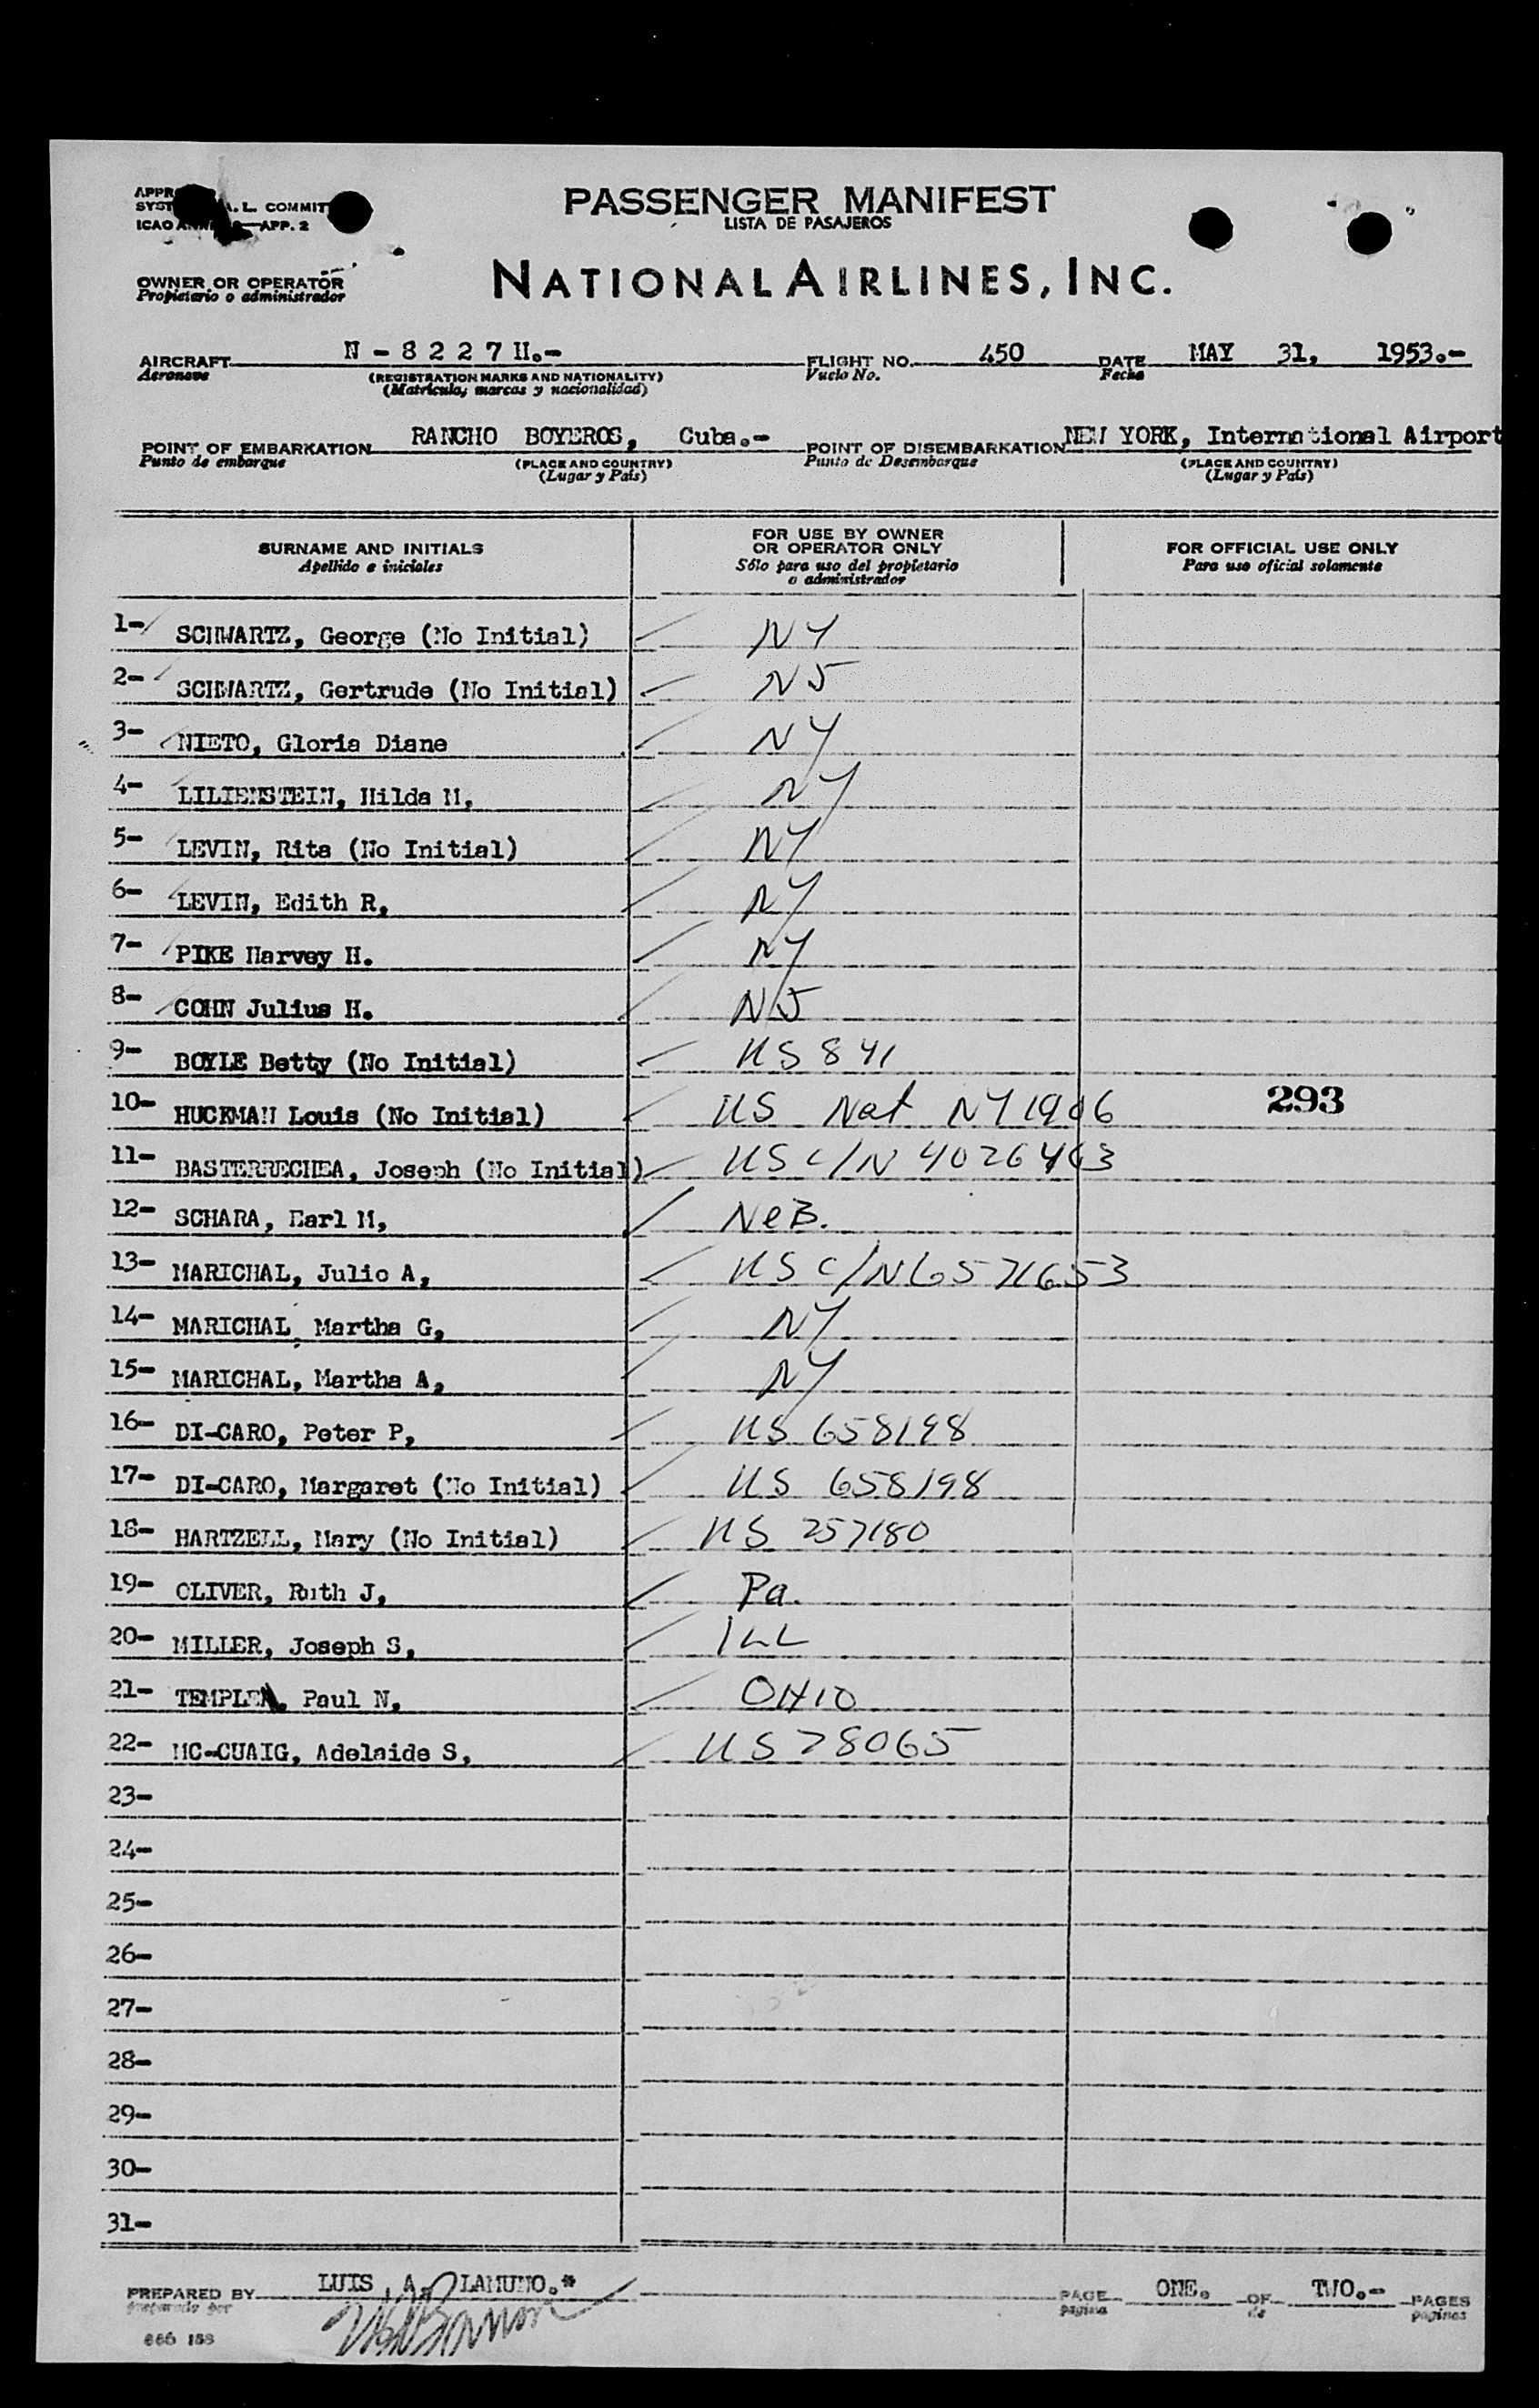 APPR
SYST A. L. COMMIT
ICAO APP. 2
PASSENGER MANIFEST
LISTA DE PASAJEROS
OWNER OR OPERATOR
Propietario o administrador
NATIONAL AIRLINES, INC.
AIRCRAFT N - 8 2 2 7 H.- FLIGHT NO. 450 DATE MAY 31, 1953.-
Aeronave (REGISTRATION MARKS AND NATIONALITY) Vuelo No. Fecha
(Matrícula, marcas y nacionalidad)
POINT OF EMBARKATION RANCHO BOYEROS, Cuba.- POINT OF DISEMBARKATION NEW YORK, International Airport
Punto de embarque (PLACE AND COUNTRY) Punto de Desembarque (PLACE AND COUNTRY)
(Lugar y País) (Lugar y País)
SURNAME AND INITIALS FOR USE BY OWNER OR OPERATOR ONLY FOR OFFICIAL USE ONLY
Apellido e iniciales Sólo para uso del propietario o administrador Para uso oficial solamente
1- SCHWARTZ, George (No Initial) NY
2- SCHWARTZ, Gertrude (No Initial) NJ
3- NIETO, Gloria Diane NY
4- LILIENSTEIN, Hilda M, NY
5- LEVIN, Rita (No Initial) NY
6- LEVIN, Edith R, NY
7- PIKE Harvey H. NY
8- COHN Julius H. NJ
9- BOYLE Betty (No Initial) US 841
10- HUCKMAN Louis (No Initial) US Nat NY 1906 293
11- BASTERRECHEA, Joseph (No Initial) US C/N 4026463
12- SCHARA, Earl M, NeB.
13- MARICHAL, Julio A, US C/N 6571653
14- MARICHAL, Martha G, NY
15- MARICHAL, Martha A, NY
16- DI-CARO, Peter P, US 658198
17- DI-CARO, Margaret (No Initial) US 658198
18- HARTZELL, Mary (No Initial) US 257180
19- OLIVER, Ruth J, Pa.
20- MILLER, Joseph S, ILL
21- Paul N, OHIO
22- MC-CUAIG, Adelaide S, US 78065
23-
24-
25-
26-
27-
28-
29-
30-
31-
PREPARED BY LUIS A. LAMUNO.* PAGE ONE. OF TWO.- PAGES
preparado por página de páginas